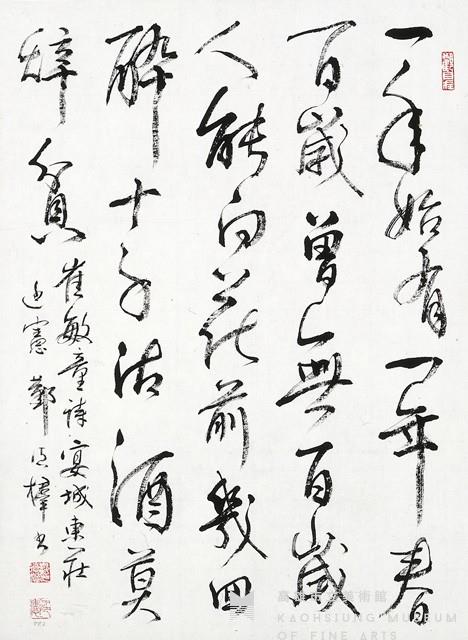 一年始有一年春
百歲曾無百歲
人能向花前幾回
醉十千沽酒莫
辭貧
崔敏童詩宴城東莊
憲鄭樟書
高雄市立美術館
KAOHSIUNG MUSEUM
OF FINE ARTS